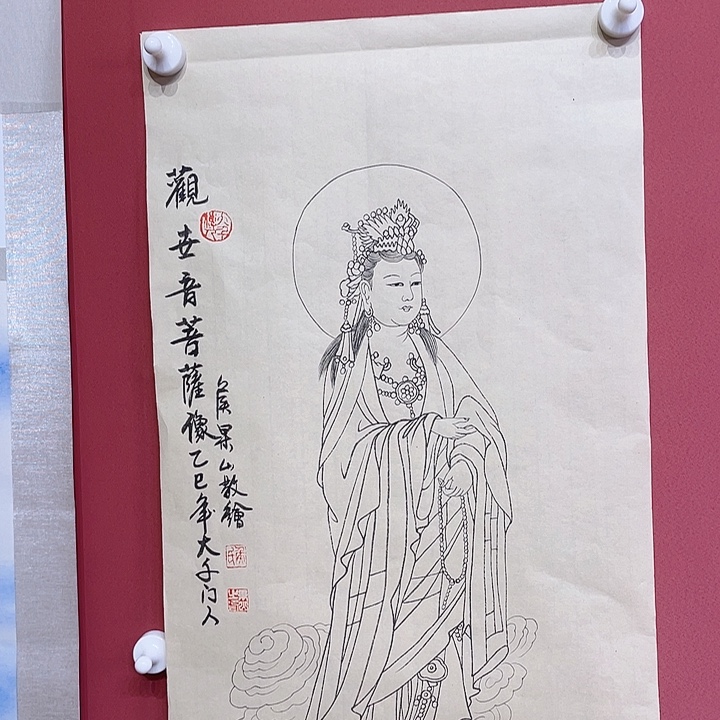 觀世音菩薩像乙巳年大千门人
侯果山敬繪